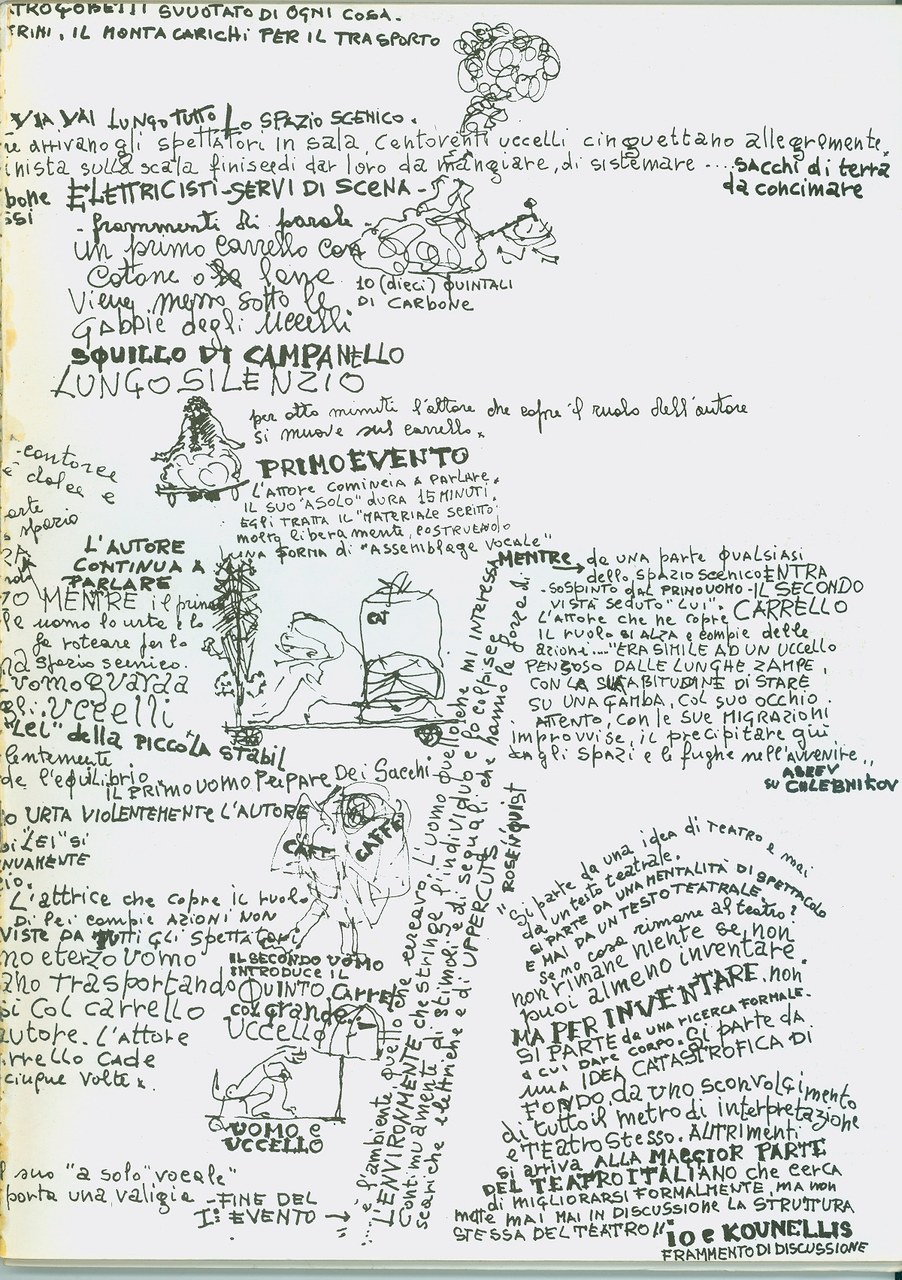 TROGOBETTI SVUOTATO DI OGNI COSA.
TRINI, IL MONTACARICHI PER IL TRASPORTO
VIA VAI LUNGO TUTTO LO SPAZIO SCENICO.
arrivano gli spettatori in sala, centoventi uccelli cinguettano allegramente.
inista sulla scala finisce di dar loro da mangiare, di sistemare .... sacchi di terra
da concimare
bone ELETTRICISTI-SERVI DI SCENA -
ssi
- frammenti di parole -
un primo carrello con
cotone o lana
viene messo sotto le
gabbie degli uccelli
10 (dieci) QUINTALI
DI CARBONE
SQUILLO DI CAMPANELLO
LUNGO SILENZIO
per otto minuti l'attore che copre il ruolo dell'autore
si muove sul carrello.
PRIMO EVENTO
L'ATTORE COMINCIA A PARLARE.
IL SUO "A SOLO" DURA 15 MINUTI.
EGLI TRATTA IL "MATERIALE SCRITTO
molto liberamente, COSTRUENDO
UNA FORMA di "Assemblage VOCALE"
contorce
dolce e
arte
spazio
L'AUTORE
CONTINUA A
PARLARE
MENTRE il primo
le uomo lo urta e lo
fa roteare per lo
spazio scenico.
L'uomo guarda
gli uccelli
"Lei" della piccola stabil
lentemente
de l'equilibrio
IL PRIMO UOMO PREPARA Dei Sacchi
CAF
CAFFÈ
O URTA VIOLENTEMENTE L'AUTORE
"LEI" SI
NUAMENTE
CIO.
L'attrice che copre il ruolo
Di lei compie AZIONI NON
VISTE DA TUTTI GLI Spettatori
no e terzo uomo
ano trasportando
si col carrello
autore. L'attore
rrello cade
cinque volte.
IL SECONDO UOMO
INTRODUCE IL
QUINTO Carrello
col grande
Uccello
UOMO e
UCCELLO
l suo "a solo" vocale"
porta una valigia - FINE DEL
I° EVENTO →
MENTRE → da una parte qualsiasi
dello spazio scenico ENTRA
- SOSPINTO dal PRIMO UOMO - IL SECONDO
CARRELLO
VISTA SEDUTO "LUI".
L'attore che ne copre
IL RUOLO SI ALZA e compie delle
azioni...."ERA SIMILE AD UN UCCELLO
PENSOSO DALLE LUNGHE ZAMPE,
CON LA SUA ABITUDINE DI STARE
SU UNA GAMBA, COL SUO OCCHIO
ATTENTO, con le SUE MIGRAZIONI
improvvise, il precipitare qui
negli spazi e le fughe nell'avvenire,,
ASEEV
su CHLEBNIKOV
.... è l'ambiente quello che cercavo. L'uomo quello che mi interessa
L'ENVIRONMENTE che stringe l'individuo e lo colpisce
continuamente di stimoli e di segnali che hanno la forza di
scariche elettriche e di UPPERCUTS
"ROSENQUIST
Si parte da una idea di TEATRO e mai
da un testo teatrale.
SI PARTE DA UNA MENTALITÀ DI SPETTACOLO
E MAI DA UN TESTO TEATRALE.
Se no cosa rimane al teatro?
non rimane niente se non
puoi almeno inventare.
MA PER INVENTARE, non
SI PARTE da UNA RICERCA FORMALE.
a cui DARE CORPO. Si parte da
una IDEA CATASTROFICA DI
FONDO, da uno sconvolgimento
di tutto il metro di interpretazione
e TEATRO STESSO. ALTRIMENTI
si arriva ALLA MAGGIOR PARTE
DEL TEATRO ITALIANO che cerca
di MIGLIORARSI FORMALMENTE, ma non
mette mai MAI IN DISCUSSIONE LA STRUTTURA
STESSA DEL TEATRO //
io e KOUNELLIS
FRAMMENTO DI DISCUSSIONE